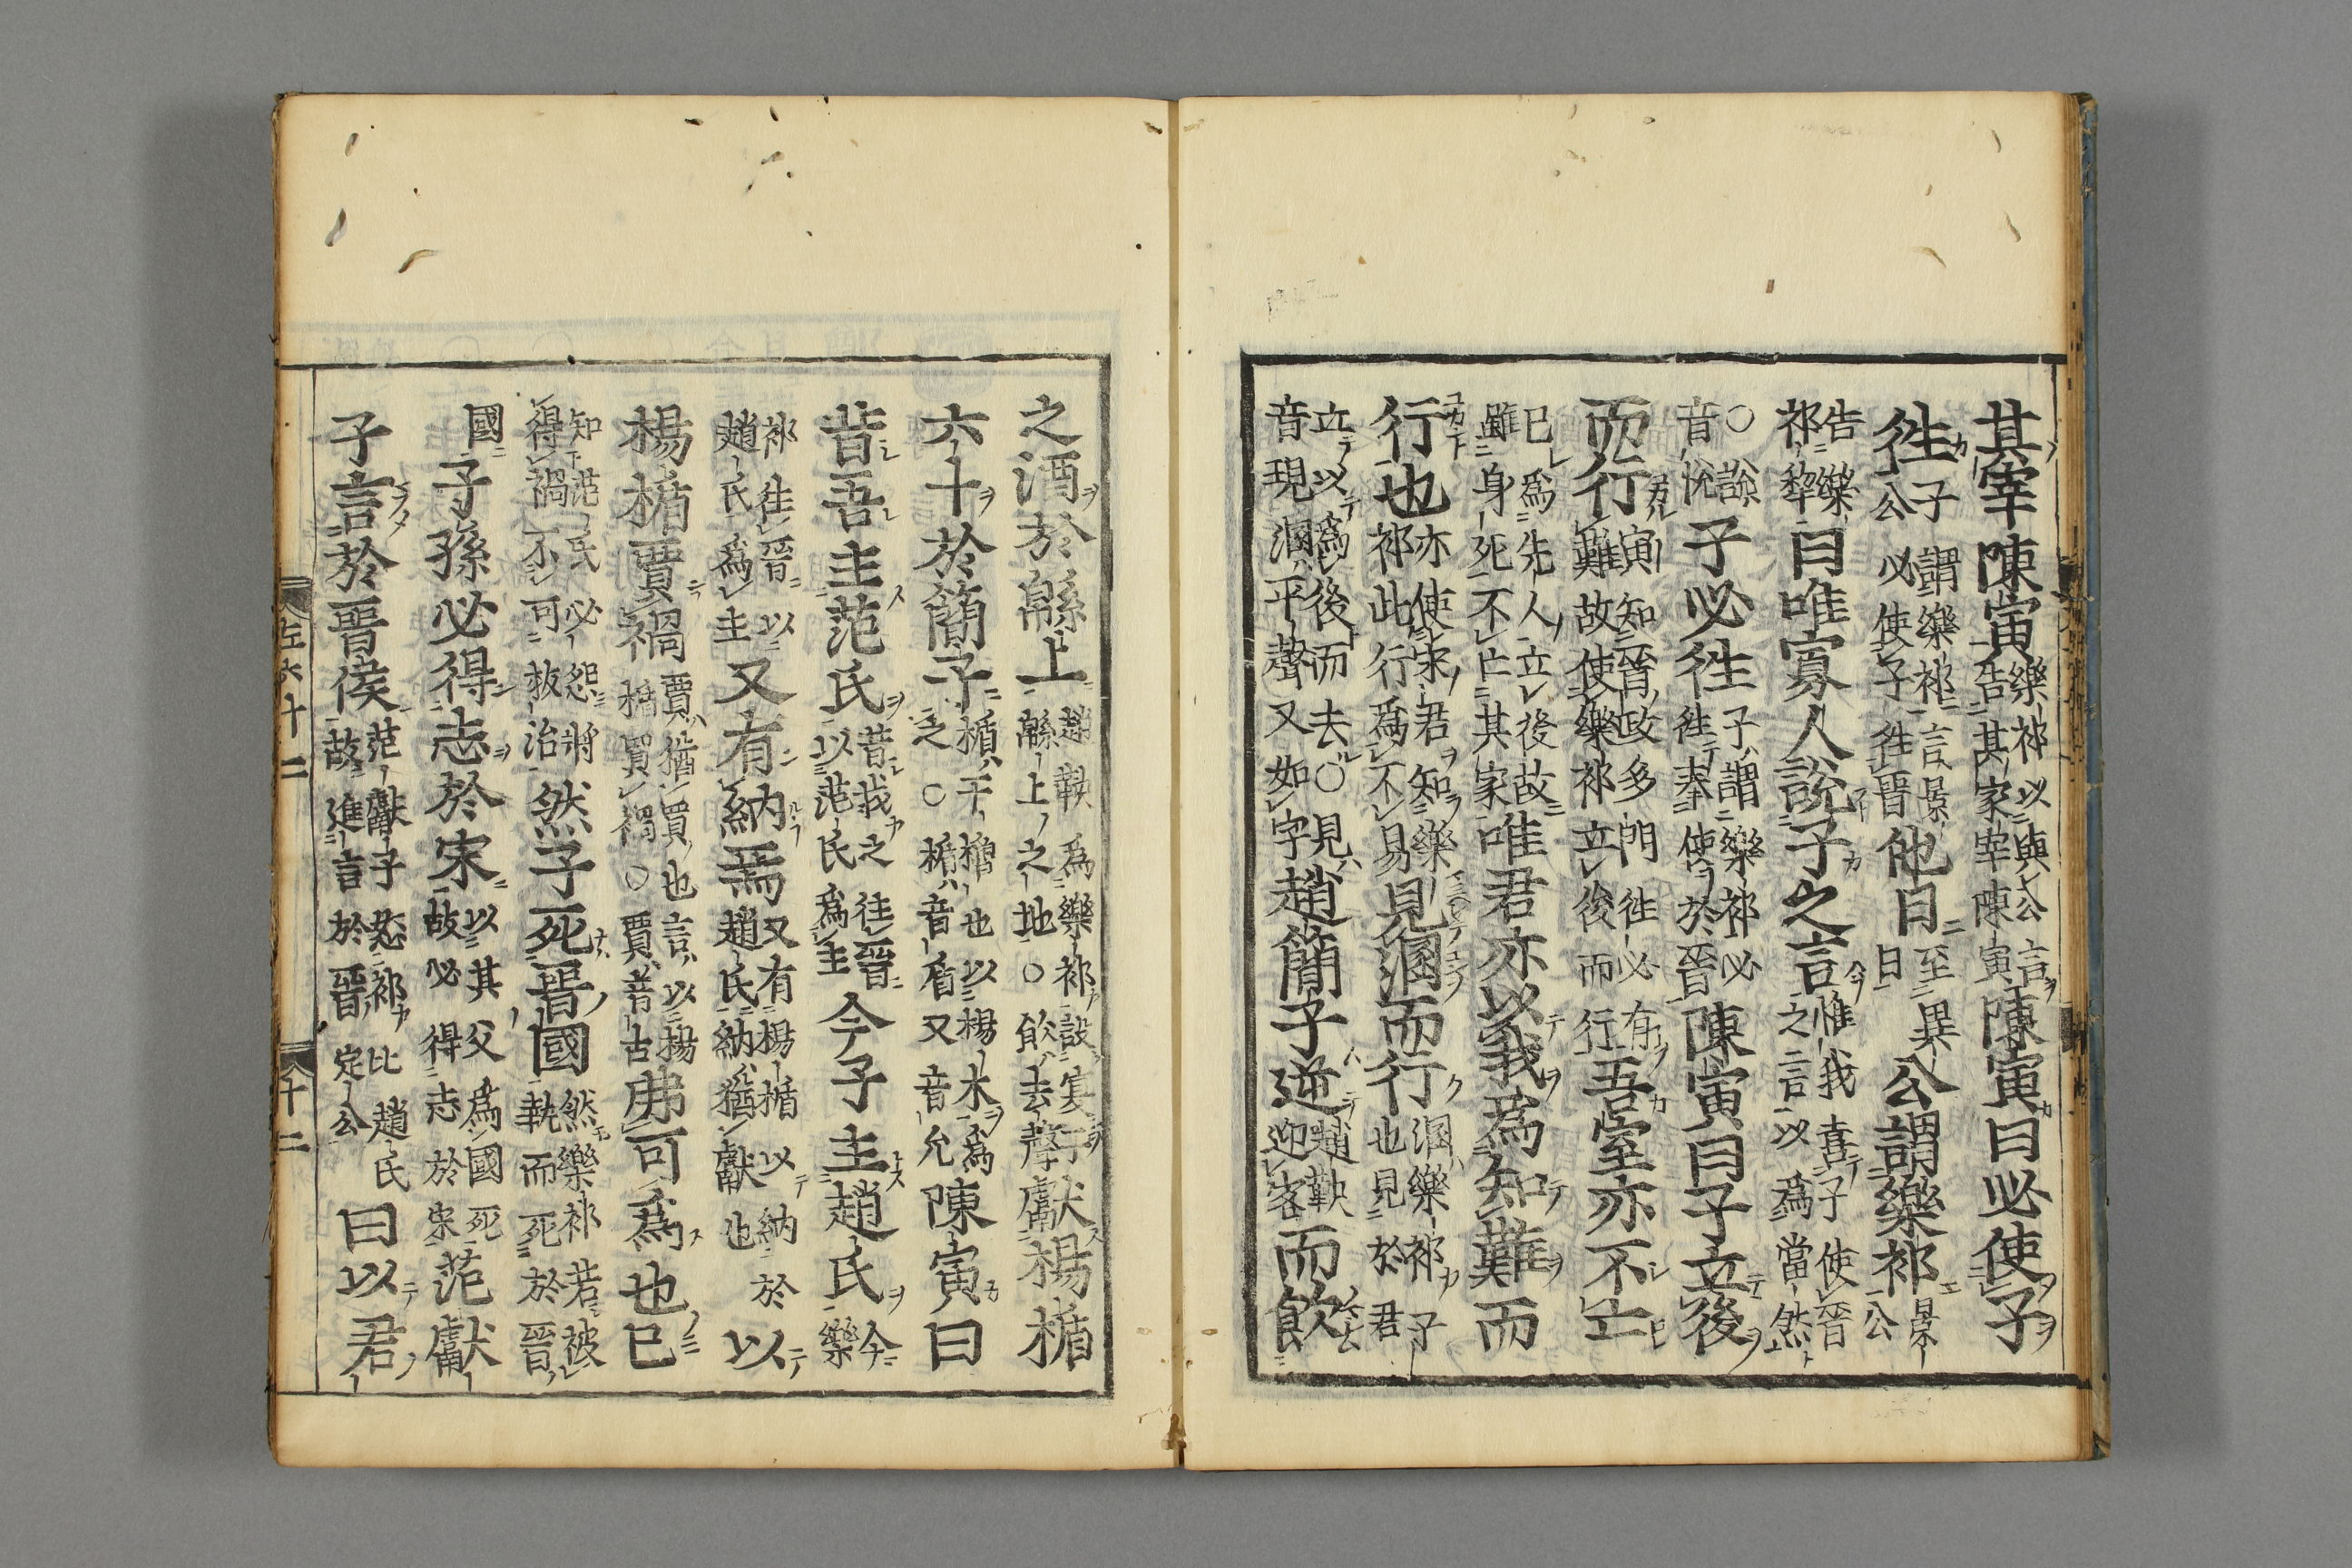 其宰陳寅樂祁以與公言告其家宰陳寅陳寅曰必使子
徃子公謂樂祁言景必使子徃晋他日至異日公謂樂祁景公
告樂祁犂曰唯寡人說子之言惟我喜子使晋之言以爲當然
○說音悅子必徃子謂樂祁必徃奉使於晉陳寅曰子立後
而行寅知晋政多門徃必有難故使樂祁立後而行吾室亦不亡
已爲先人立後故雖身死不亡其家唯君亦以我爲知難而
行也亦使宋君知樂祁此行爲不易見溷而行溷樂祁子也見於君
立以爲後而去○見音現溷平聲又如字趙簡子逆趙鞅迎客而飲
之酒於緜上趙鞅爲樂祁設宴緜上之地○飲去聲獻楊楯
六十於簡子楯干櫓也以楊木爲之○楯音盾又音允陳寅曰
昔吾主范氏昔我之徃晋以范氏爲主今子主趙氏今樂
祁徃晋以趙氏爲主又有納焉又有楊楯以納於趙氏納猶獻也以
楊楯賈禍賈猶買也言以楊楯買禍○賈音古弗可爲也已
知范氏必怨將得禍不可救治然子死晋國然樂祁若被執而死於晋
國子孫必得志於宋以其父爲國死故必得志於宋范獻
子言於晋侯范獻子怒祁比趙氏故進言於晋定公曰以君
左六十二
十二